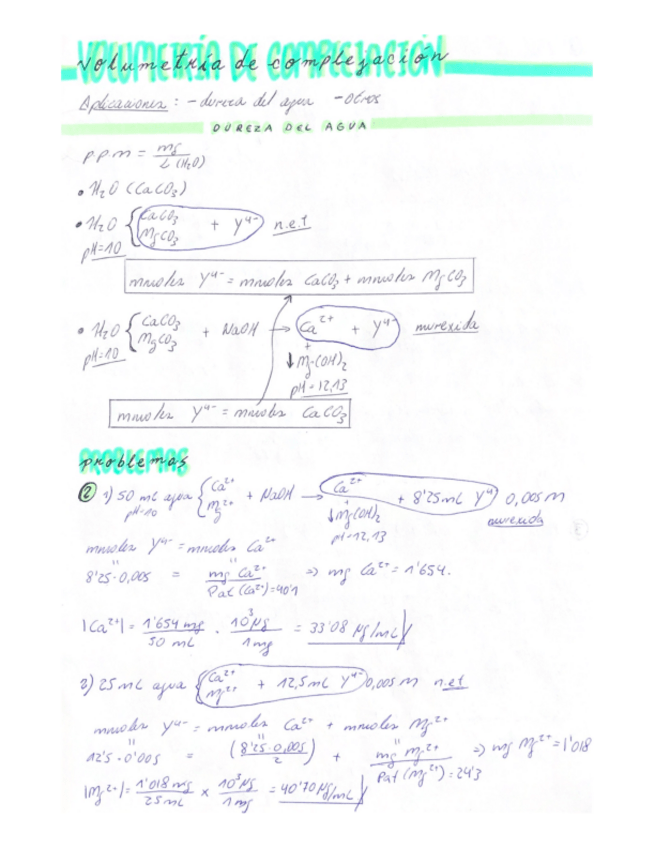 Volumetría de complejación
Aplicaciones: - dureza del agua - otros
DUREZA DEL AGUA
ppm = mg / L (H₂O)
• H₂O (CaCO₃)
• H₂O { CaCO₃ MgCO₃ + Y⁴⁻ n.e.t
pH=10
mmoles Y⁴⁻ = mmoles CaCO₃ + mmoles MgCO₃
• H₂O { CaCO₃ MgCO₃ + NaOH → Ca²⁺ + Y⁴⁻ murexida
pH=10
+
↓Mg(OH)₂
pH=12,13
mmoles Y⁴⁻ = mmoles CaCO₃
problemas
② 1) 50 mL agua { Ca²⁺ Mg²⁺ + NaOH → Ca²⁺ + 8'25mL Y⁴⁻ 0,005M
pH=10 + ↓Mg(OH)₂ murexida
pH=12,13
mmoles Y⁴⁻ = mmoles Ca²⁺
8'25·0,005 = mg Ca²⁺ / Pat (Ca²⁺)=40'1 => mg Ca²⁺ = 1'654.
|Ca²⁺| = 1'654 mg / 50 mL · 10³µg / 1mg = 33'08 µg/mL
2) 25mL agua { Ca²⁺ Mg²⁺ + 12,5mL Y⁴⁻ 0,005M n.e.t
mmoles Y⁴⁻ = mmoles Ca²⁺ + mmoles Mg²⁺
12'5·0'005 = (8'25·0,005 / 2) + mg Mg²⁺ / Pat (Mg²⁺)=24'3 => mg Mg²⁺ = 1'018
|Mg²⁺| = 1'018 mg / 25mL × 10³µg / 1mg = 40'70 µg/mL